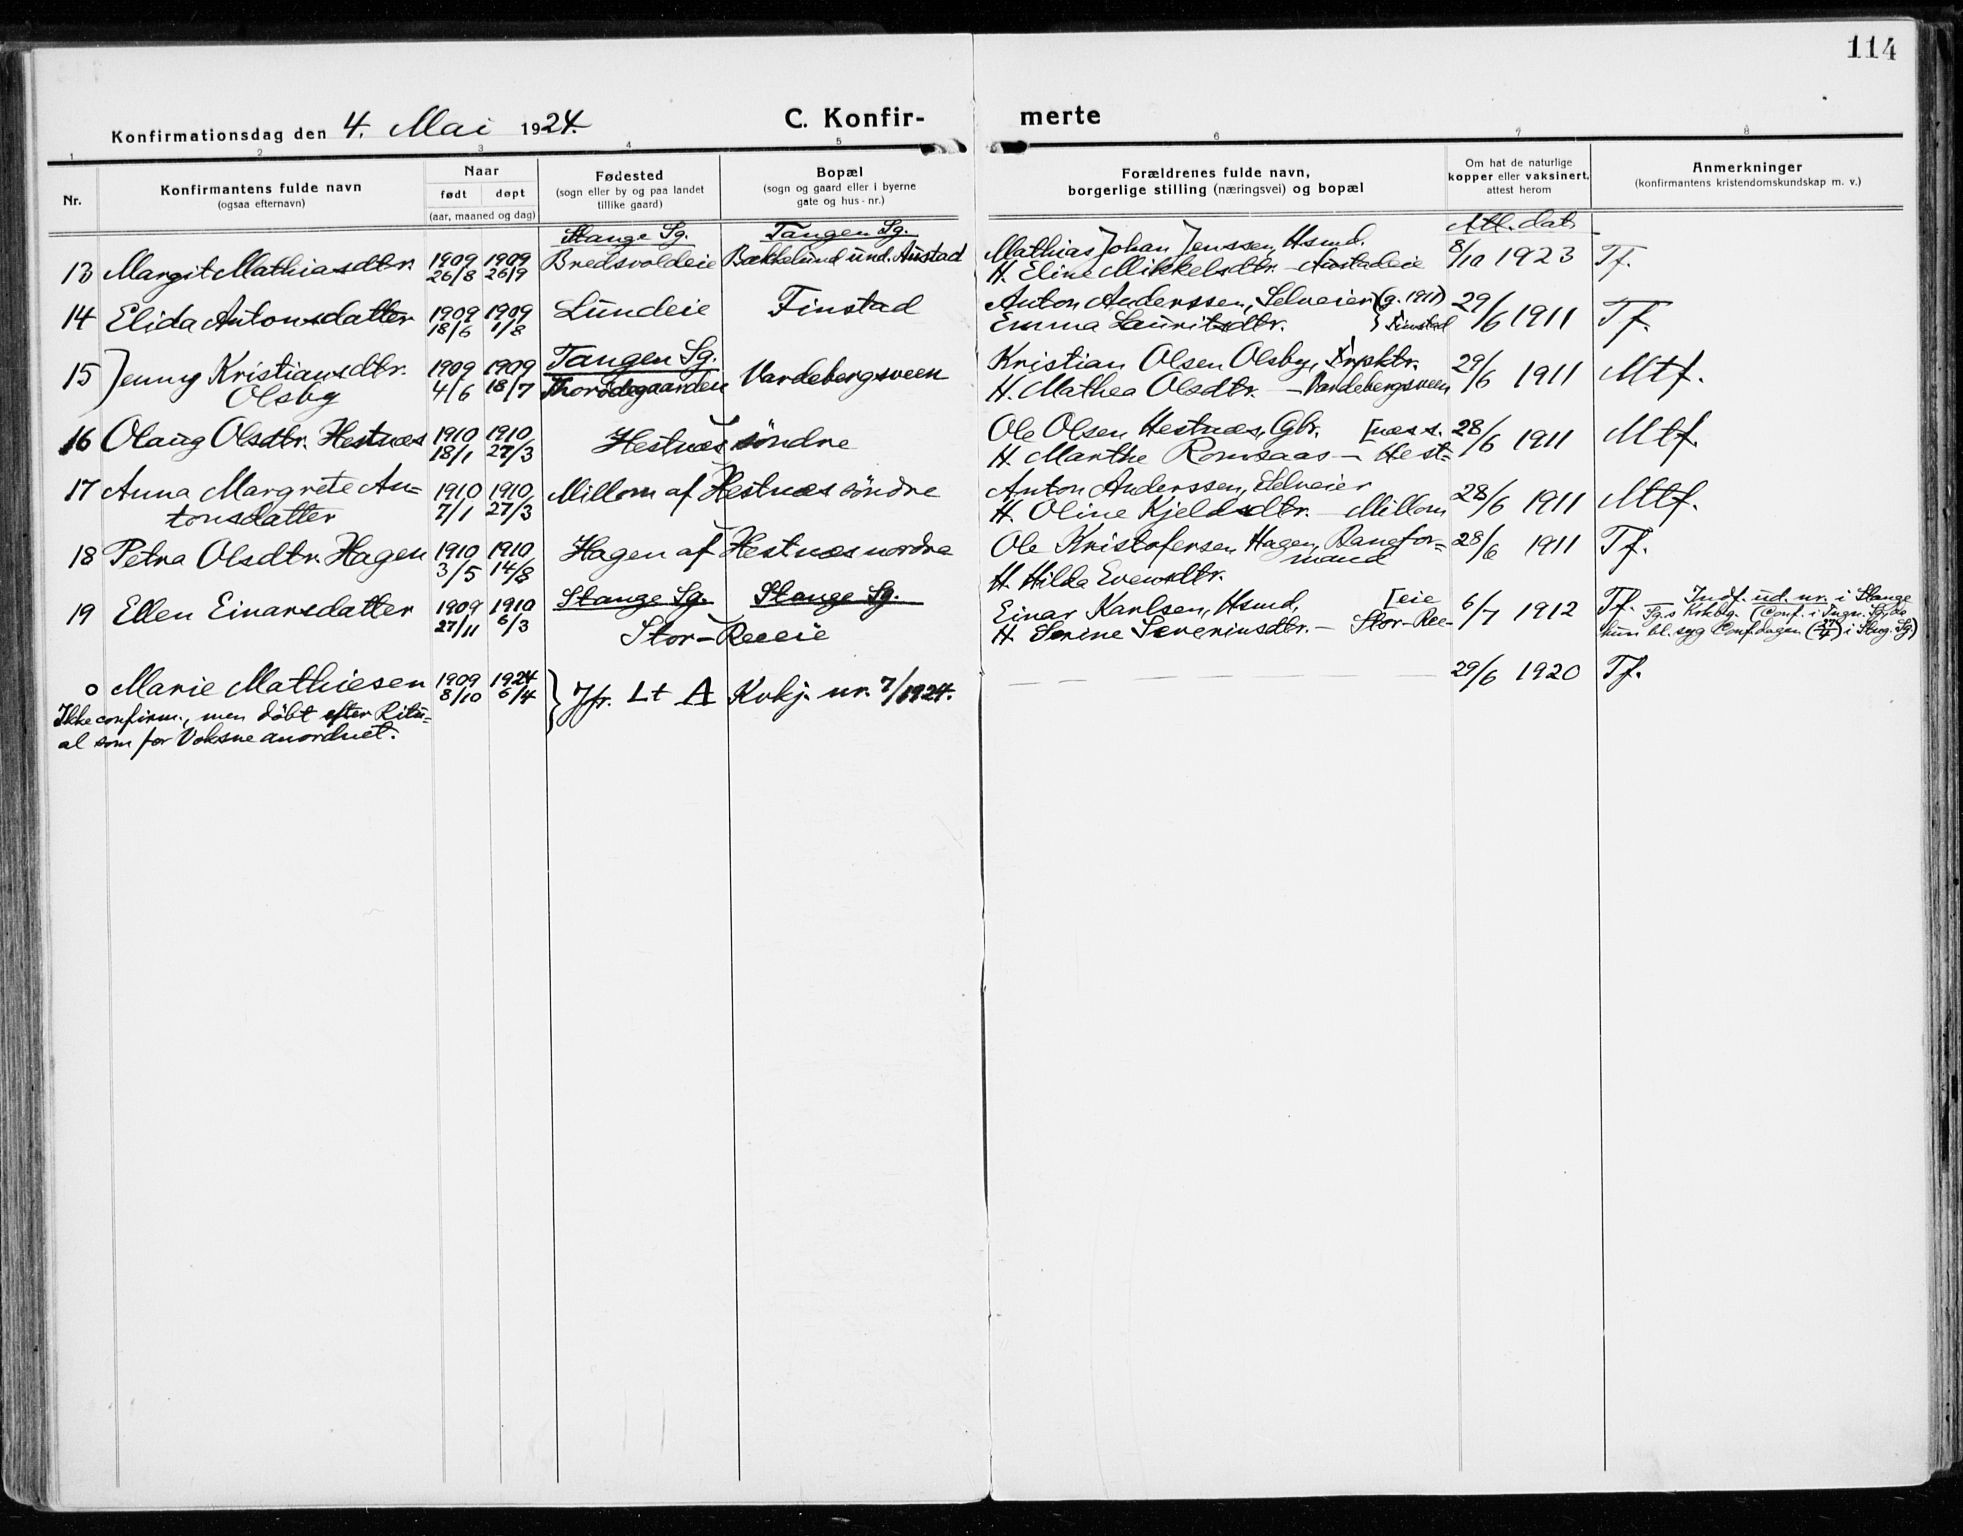 114
Konfirmationsdag den 4. Mai 1924.
C. Konfir-
merte
1 2 3 4 5 6 7 8
Nr.
Konfirmantens fulde navn
(ogsaa efternavn)
Naar
født døpt
(aar, maaned og dag)
Fødested
(sogn eller by og paa landet
tillike gaard)
Bopæl
(sogn og gaard eller i byerne
gate og hus-nr.)
Forældrenes fulde navn,
borgerlige stilling (næringsvei) og bopæl
Om hat de naturlige
kopper eller vaksinert.
attest herom
Anmerkninger
(konfirmantens kristendomskundskap m. v.)
Stange Sg. Tangen Sg. Att. dat.
13 Margit Mathiasdtr. 1909 26/8 1909 26/9 Bredsvoldeie Bækkelund und. Austad
Mathias Johan Jenssen, Hsmd.
H. Eline Mikkelsdtr. - Austadeie
8/10 1923 Tf.
14 Elida Antonsdatter 1909 18/6 1909 1/8 Lundeie Finstad
Anton Anderssen, Selveier (g. 1911)
Emma Lauritsdtr. } Finstad
29/6 1911 Tf.
Tangen Sg.
15 Jenny Kristiansdtr. 1909 4/6 1909 18/7 Vardebergsveen
Olsby
Kristian Olsen Olsby,
H. Mathea Olsdtr. - Vardebergsveen
29/6 1911 Mtf.
16 Olaug Olsdtr. Hestnæs 1910 18/1 1910 27/3 Hestnæs søndre
Ole Olsen Hestnæs, Gbr. [næs s.
H. Marthe Romsaas - Hest=
28/6 1911 Mtf.
17 Anna Margrete An=
tonsdatter 1910 7/1 1910 27/3 Millom af Hestnæs søndre
Anton Anderssen, Selveier
H. Oline Kjeldsdtr. - Millom
28/6 1911 Mtf.
18 Petra Olsdtr. Hagen 1910 3/5 1910 14/8 Hagen af Hestnæs nordre
Ole Kristofersen Hagen, Banefor=
mand
H. Hilda Evensdtr.
28/6 1911 Tf.
Stange Sg. Stange Sg.
19 Ellen Einarsdatter 1909 27/11 1910 6/3 Stor-Reeeie
Einar Karlsen, Hsmd, [eie
H. Serine Severinsdtr. - Stor-Ree-
6/7 1912 Tf. - Indf. ud. nr. i Stange
Sg.s Krkbg. (Conf. i Tngn. Sg, da
hun bl. syg Conf.dagen i Stng. Sg.)
o Marie Mathiesen 1909 8/10 1924 6/4 } Jfr. Lt A Kvkj. nr. 7/1924.
29/6 1920 Tf.
Ikke confirm., men døbt efter Ritu=
al som for Voksne anordnet.